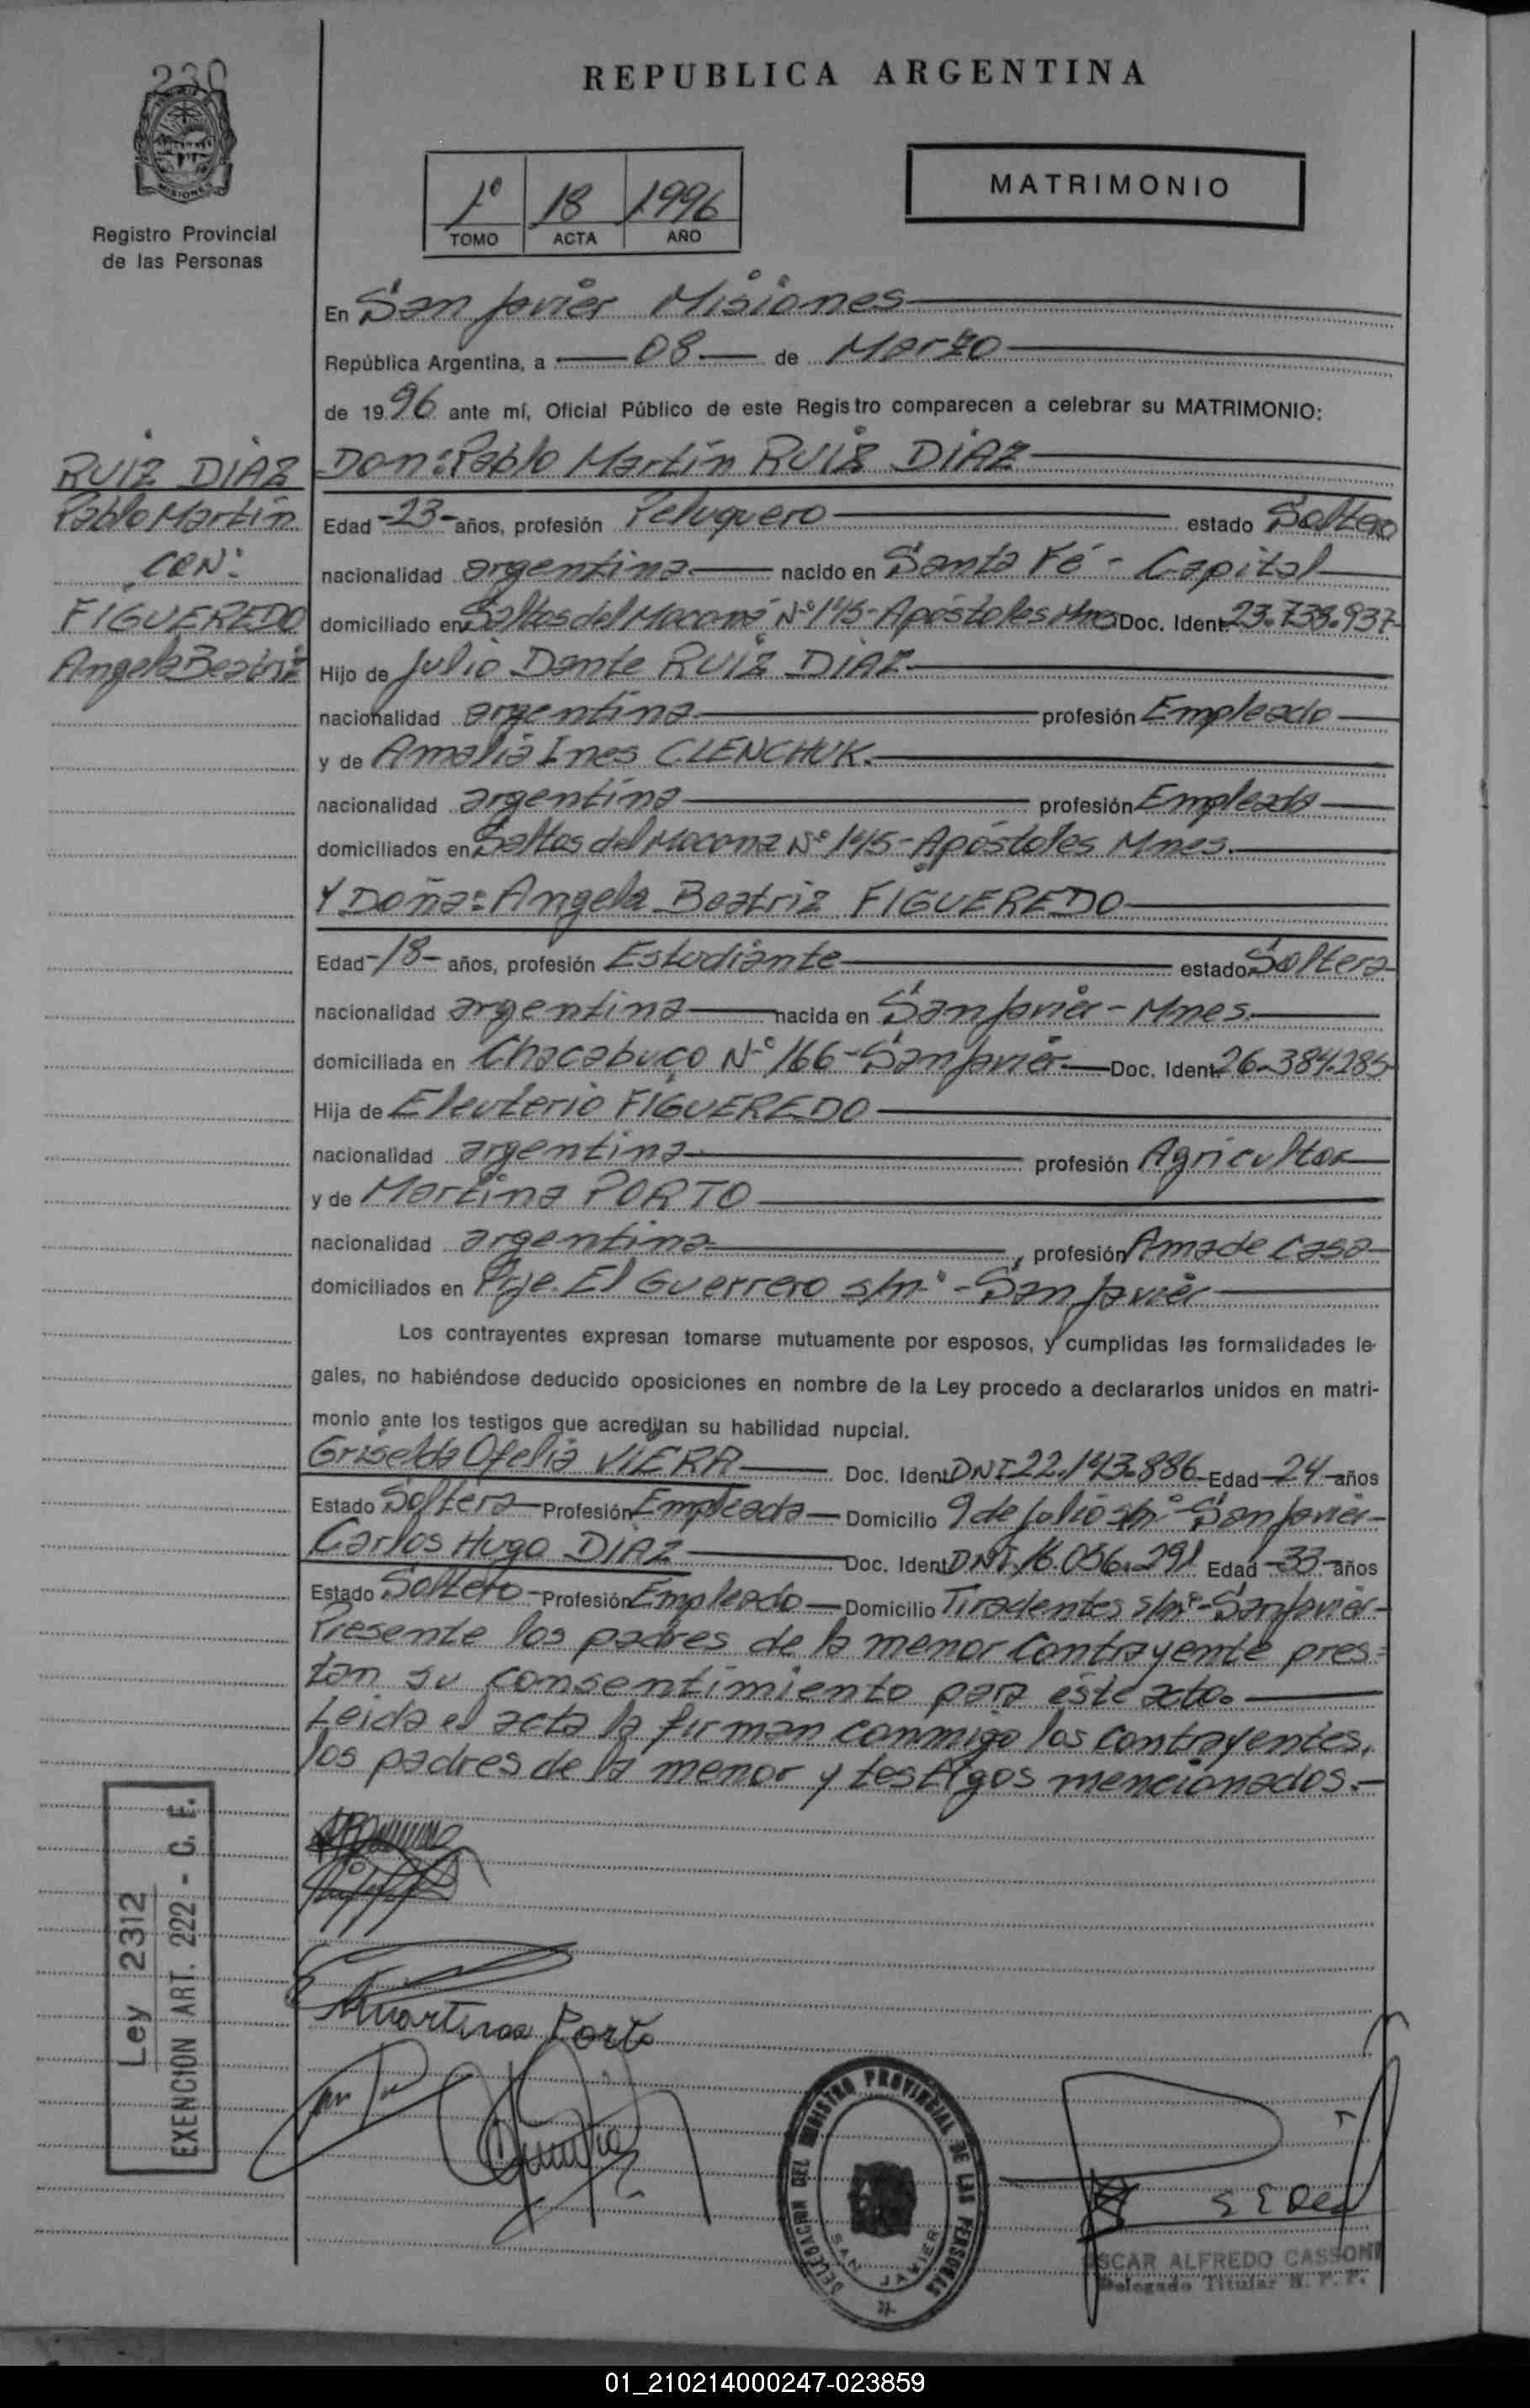 230
REPUBLICA ARGENTINA
MISIONES
Registro Provincial
de las Personas
1º 18 1996
TOMO ACTA AÑO
MATRIMONIO
En San Javier Misiones
República Argentina, a 08 de Marzo
de 1996 ante mí, Oficial Público de este Registro comparecen a celebrar su MATRIMONIO:
RUIZ DIAZ
Pablo Martín
CON:
FIGUEREDO
Angela Beatriz
Don: Pablo Martín RUIZ DIAZ
Edad -23- años, profesión Peluquero estado Soltero
nacionalidad argentina nacido en Santa Fé - Capital
domiciliado en Saltos del Moconá Nº 145 - Apóstoles Mnes Doc. Ident. 23.738.937
Hijo de Julio Dante RUIZ DIAZ
nacionalidad argentina profesión Empleado
y de Amalia Ines CLENCHUK.
nacionalidad argentina profesión Empleada
domiciliados en Saltos del Mocona Nº 145 - Apóstoles Mnes.
Y Doña: Angela Beatriz FIGUEREDO
Edad -18- años, profesión Estudiante estado Soltera
nacionalidad argentina nacida en San Javier - Mnes.
domiciliada en Chacabuco Nº 166 - San Javier Doc. Ident. 26.384.285
Hija de Eleuterio FIGUEREDO
nacionalidad argentina profesión Agricultor
y de Martina PORTO
nacionalidad argentina, profesión Ama de casa
domiciliados en Pje. El Guerrero s/nº - San Javier
Los contrayentes expresan tomarse mutuamente por esposos, y cumplidas las formalidades le-
gales, no habiéndose deducido oposiciones en nombre de la Ley procedo a declararlos unidos en matri-
monio ante los testigos que acreditan su habilidad nupcial.
Griselda Ofelia VIERA Doc. Ident. DNI 22.143.886 Edad -24- años
Estado Soltera Profesión Empleada Domicilio 9 de Julio s/nº - San Javier
Carlos Hugo DIAZ Doc. Ident. DNI. 16.056.291 Edad -33- años
Estado Soltero Profesión Empleado Domicilio Tiradentes s/nº - San Javier
Presente los padres de la menor contrayente pres-
tan su consentimiento para éste acto.
Leida el acta la firman conmigo los contrayentes,
los padres de la menor y testigos mencionados.
Ley 2312
EXENCION ART. 222 - C. F.
Martina Porto
DELEGACION DEL REGISTRO PROVINCIAL DE LAS PERSONAS
SAN JAVIER
OSCAR ALFREDO CASSONI
Delegado Titular R. P. P.
01_210214000247-023859